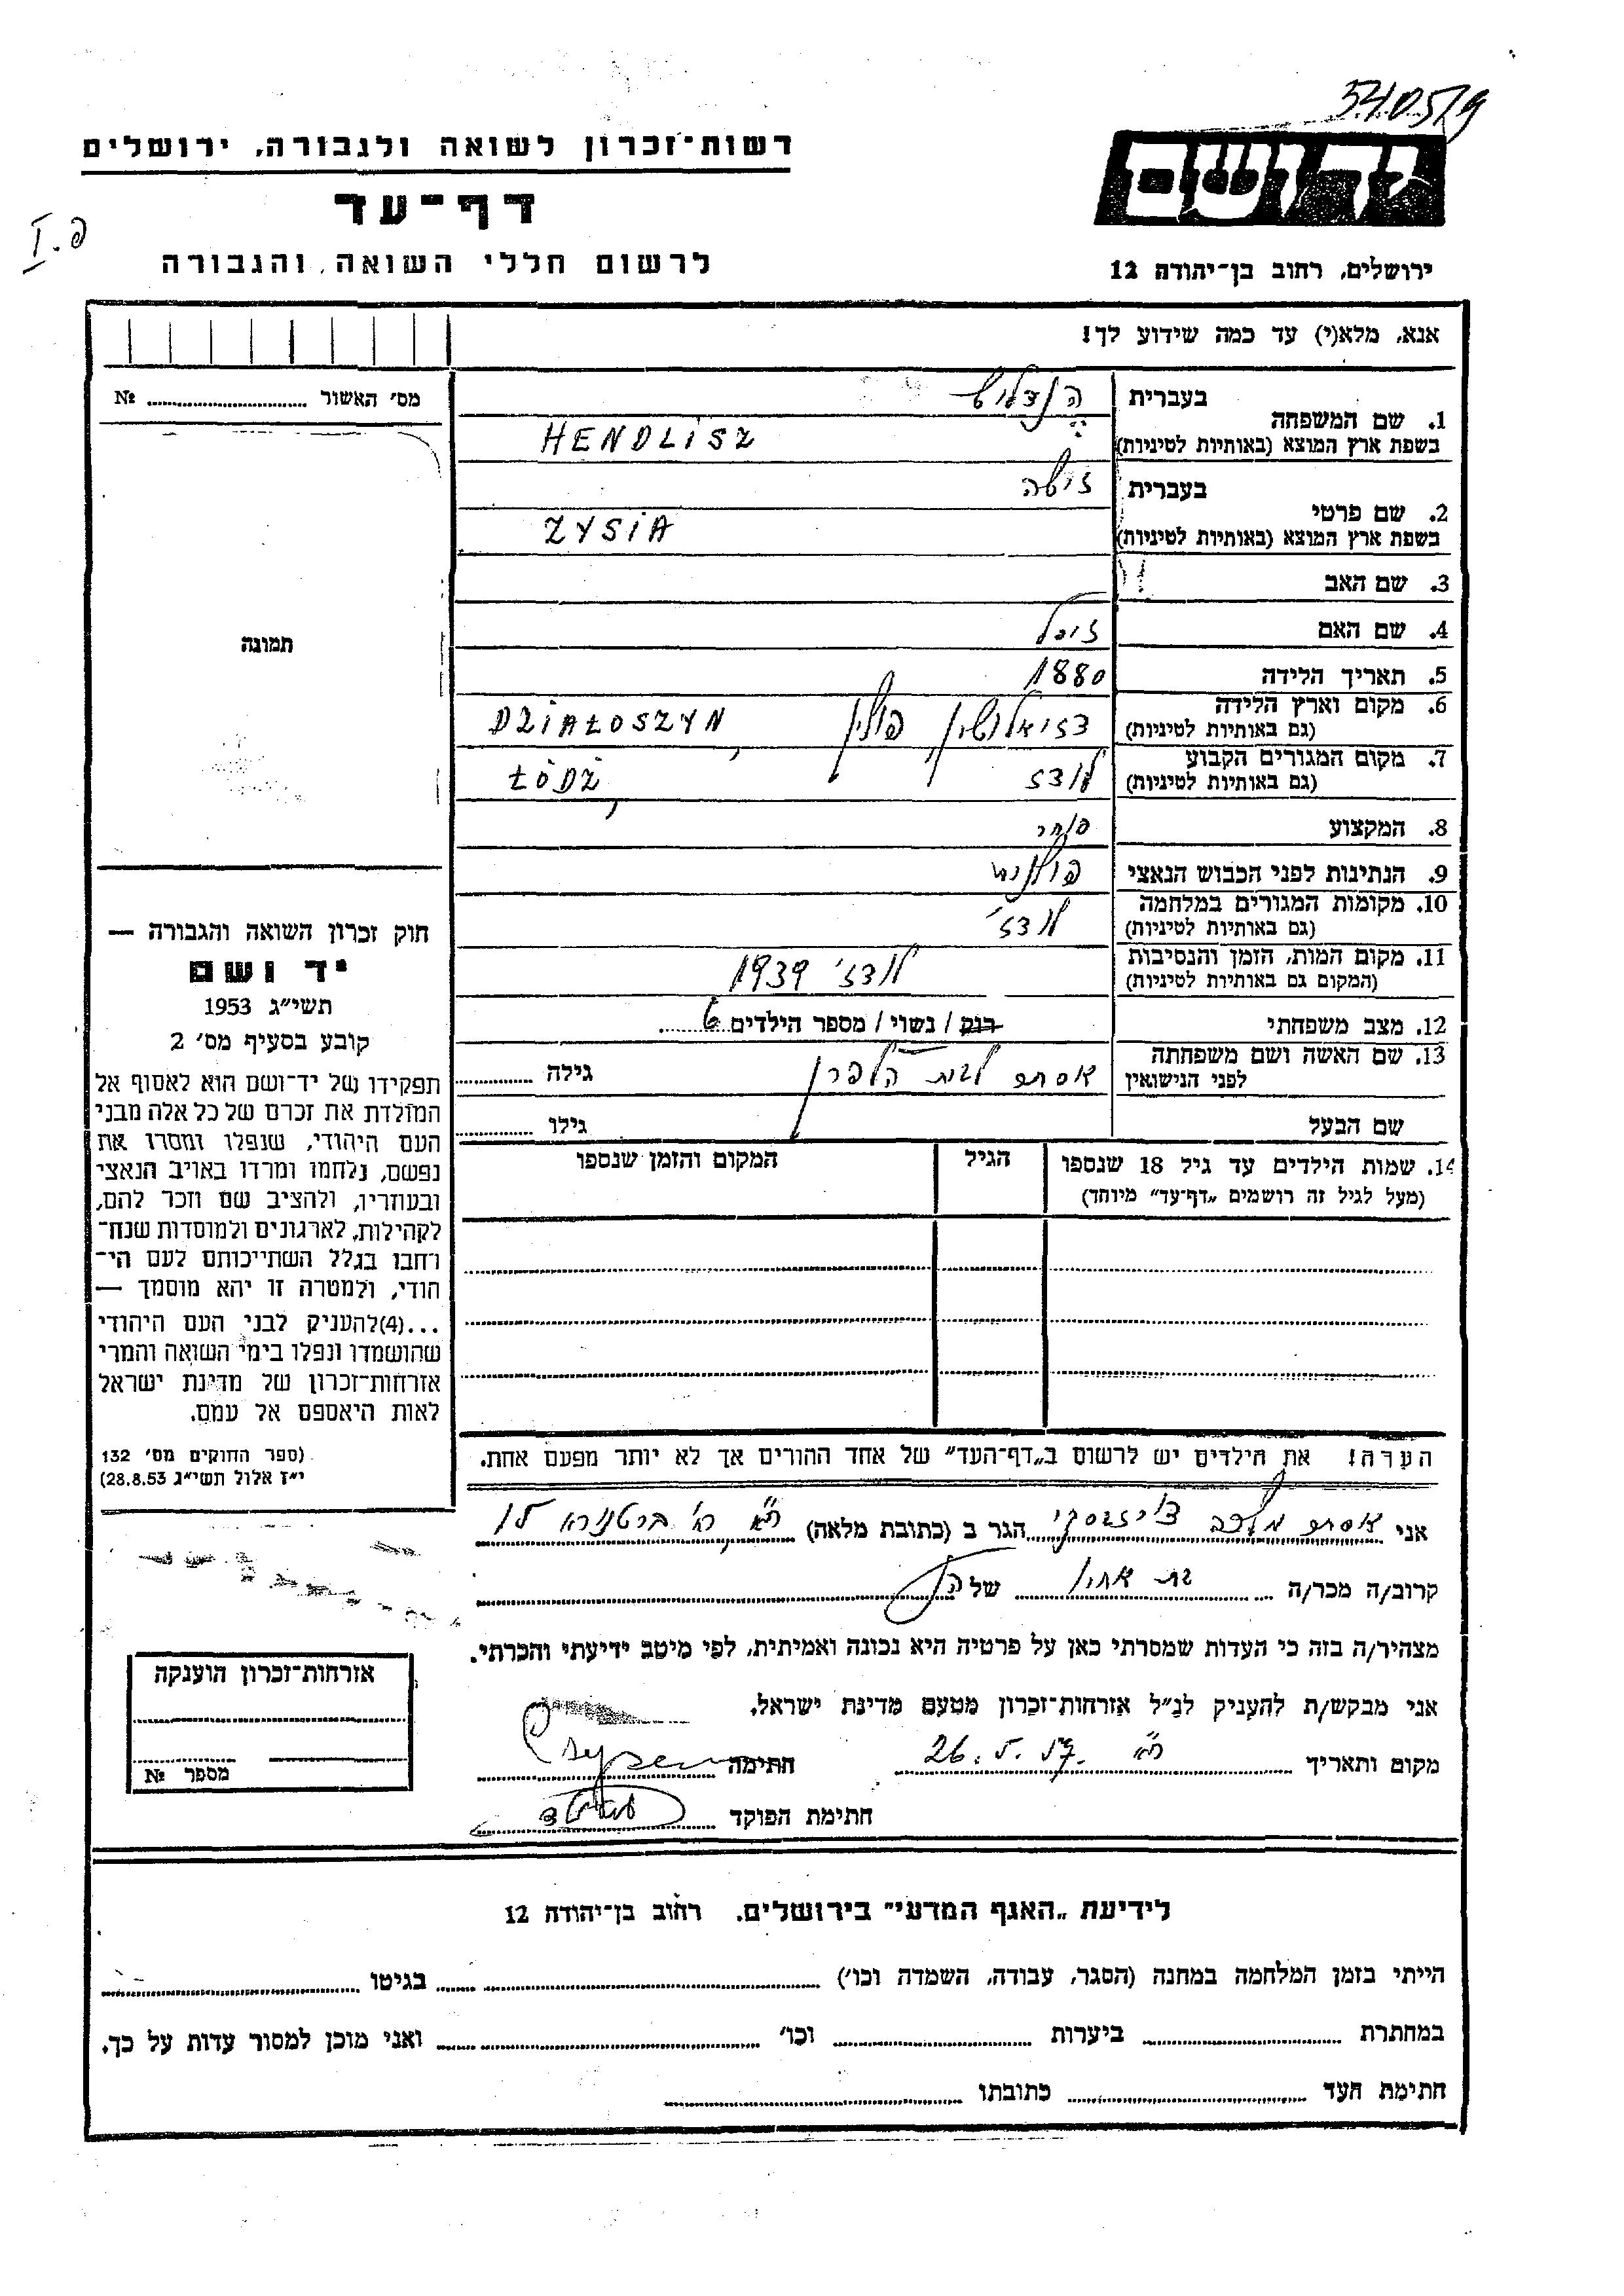 רשות־זכרון לשואה ולגבורה, ירושלים
דף־עד
לרשום חללי השואה והגבורה
פ. I
ידושם
ירושלים, רחוב בן־יהודה 12
אנא, מלא(י) עד כמה שידוע לך!
מס׳ האשור № 
תמונה
חוק זכרון השואה והגבורה —
יד ושם
תשי״ג 1953
קובע בסעיף מס׳ 2
תפקידו של יד־ושם הוא לאסוף אל
המולדת את זכרם של כל אלה מבני
העם היהודי, שנפלו ומסרו את
נפשם, נלחמו ומרדו באויב הנאצי
ובעוזריו, ולהציב שם וזכר להם,
לקהילות, לארגונים ולמוסדות שנח־
רחבו בגלל השתייכותם לעם הי־
הודי, ולמטרה זו יהא מוסמך —
...(4)להעניק לבני העם היהודי
שהושמדו ונפלו בימי השואה והמרי
אזרחות־זכרון של מדינת ישראל
לאות היאספם אל עמם.
(ספר החוקים מס׳ 132
י״ז אלול תשי״ג 28.8.53)
1. שם המשפחה
בעברית הנדליש
בשפת ארץ המוצא (באותיות לטיניות) HENDLISZ
2. שם פרטי
בעברית זישה
בשפת ארץ המוצא (באותיות לטיניות) ZYSIA
3. שם האב
4. שם האם
5. תאריך הלידה 1880
6. מקום וארץ הלידה
(גם באותיות לטיניות) דזיאלושין, פולין, DZIAŁOSZYN
7. מקום המגורים הקבוע
(גם באותיות לטיניות) לודז ŁÓDŹ,
8. המקצוע סוחר
9. הנתינות לפני הכבוש הנאצי פולנית
10. מקומות המגורים במלחמה
(גם באותיות לטיניות) לודז׳
11. מקום המות, הזמן והנסיבות
(המקום גם באותיות לטיניות) לודז׳ 1939
12. מצב משפחתי רווק / נשוי / מספר הילדים 6
13. שם האשה ושם משפחתה
לפני הנישואין אסתר לבית הלפרן גילה
שם הבעל גילו
14. שמות הילדים עד גיל 18 שנספו הגיל המקום והזמן שנספו
(מעל לגיל זה רושמים „דף־עד״ מיוחד)
הערה! את הילדים יש לרשום ב„דף־העד״ של אחד ההורים אך לא יותר מפעם אחת.
אני אסתר הגר ב (כתובת מלאה) ת״א ר׳ ברטנורא
קרוב/ה מכר/ה בת אחיו של הנ״ל
מצהיר/ה בזה כי העדות שמסרתי כאן על פרטיה היא נכונה ואמיתית, לפי מיטב ידיעתי והכרתי.
אני מבקש/ת להעניק לנ״ל אזרחות־זכרון מטעם מדינת ישראל.
מקום ותאריך ת״א 26.5.57. חתימה
חתימת הפוקד
אזרחות־זכרון הוענקה
מספר №
לידיעת „האגף המדעי״ בירושלים. רחוב בן־יהודה 12
הייתי בזמן המלחמה במחנה (הסגר, עבודה, השמדה וכו׳) בגיטו
במחתרת ביערות וכו׳ ואני מוכן למסור עדות על כך.
חתימת העד כתובתו